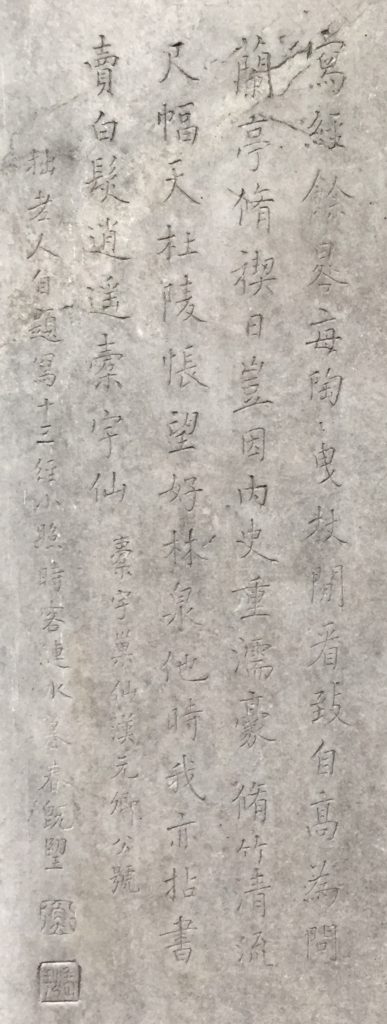 寫經餘晷每陶〻曳杖閒看致自高為問
蘭亭脩禊日豈因內史重濡豪 脩竹清流
尺幅天杜陵悵望好林泉他時我亦拈書
賣白髮逍遙橐字仙 橐字巢仙漢元卿公號
拙老人自題寫十三經小照時客漣水暮春既朢